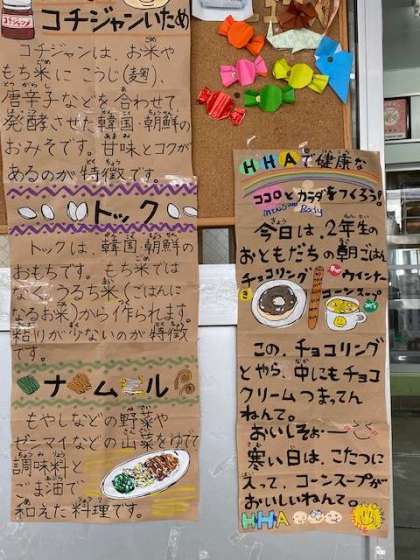 コチジャンいため
コチジャンは、お米や
もち米にこうじ(麹)、
唐辛子などを合わせて、
発酵させた韓国・朝鮮の
おみそです。甘味とコクが
あるのが特徴です。
トック
トックは、韓国・朝鮮の
おもちです。もち米では
なく、うるち米(ごはんに
なるお米)から作られます。
粘りが少ないのが特徴
です。
ナムル
もやしなどの野菜や
ゼンマイなどの山菜をゆでて
調味料と
ごま油で
和えた料理です。
HHAで健康な
ココロとカラダをつくろう!
今日は、2年生の
おともだちの朝ごはん
チョコリング
ウインナー
コーンスープ
この、チョコリング
とやら、中にもチョコ
クリームつまってん
ねんて。
おいしそぉー
寒い日は、こたつに
えって、コーンスープが
おいしいねんて。
HHA